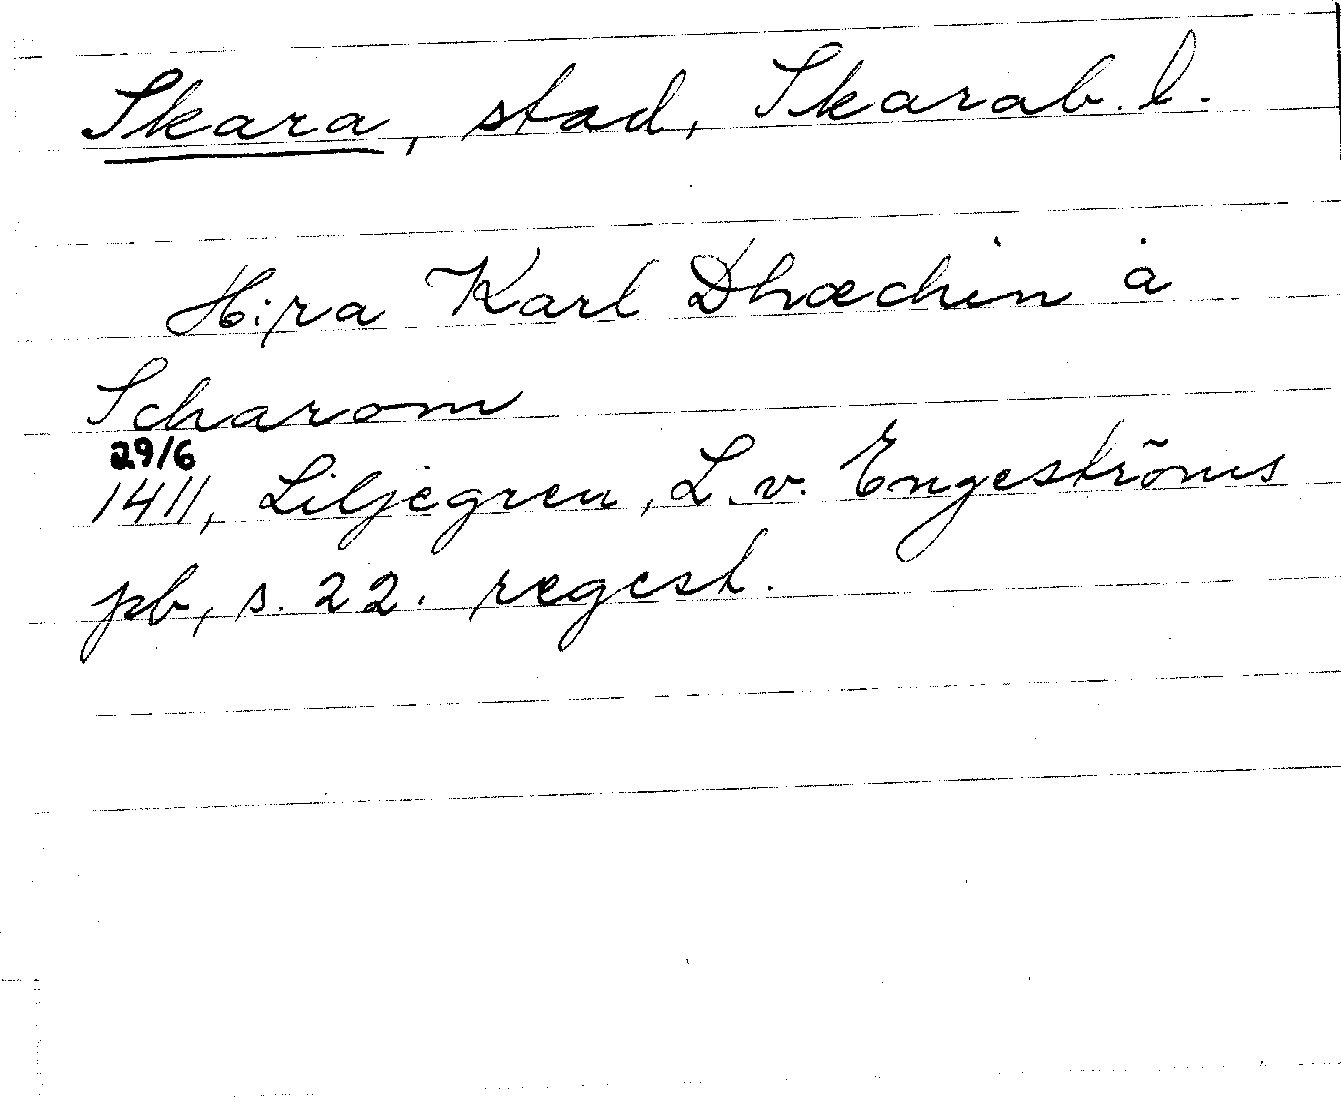 Skara, stad, Skarab. l.
H:ra Karl Dhæchin å
Scharom
29/6
1411, Liljegren, L. v. Engeströms
pb, s. 22. regest.